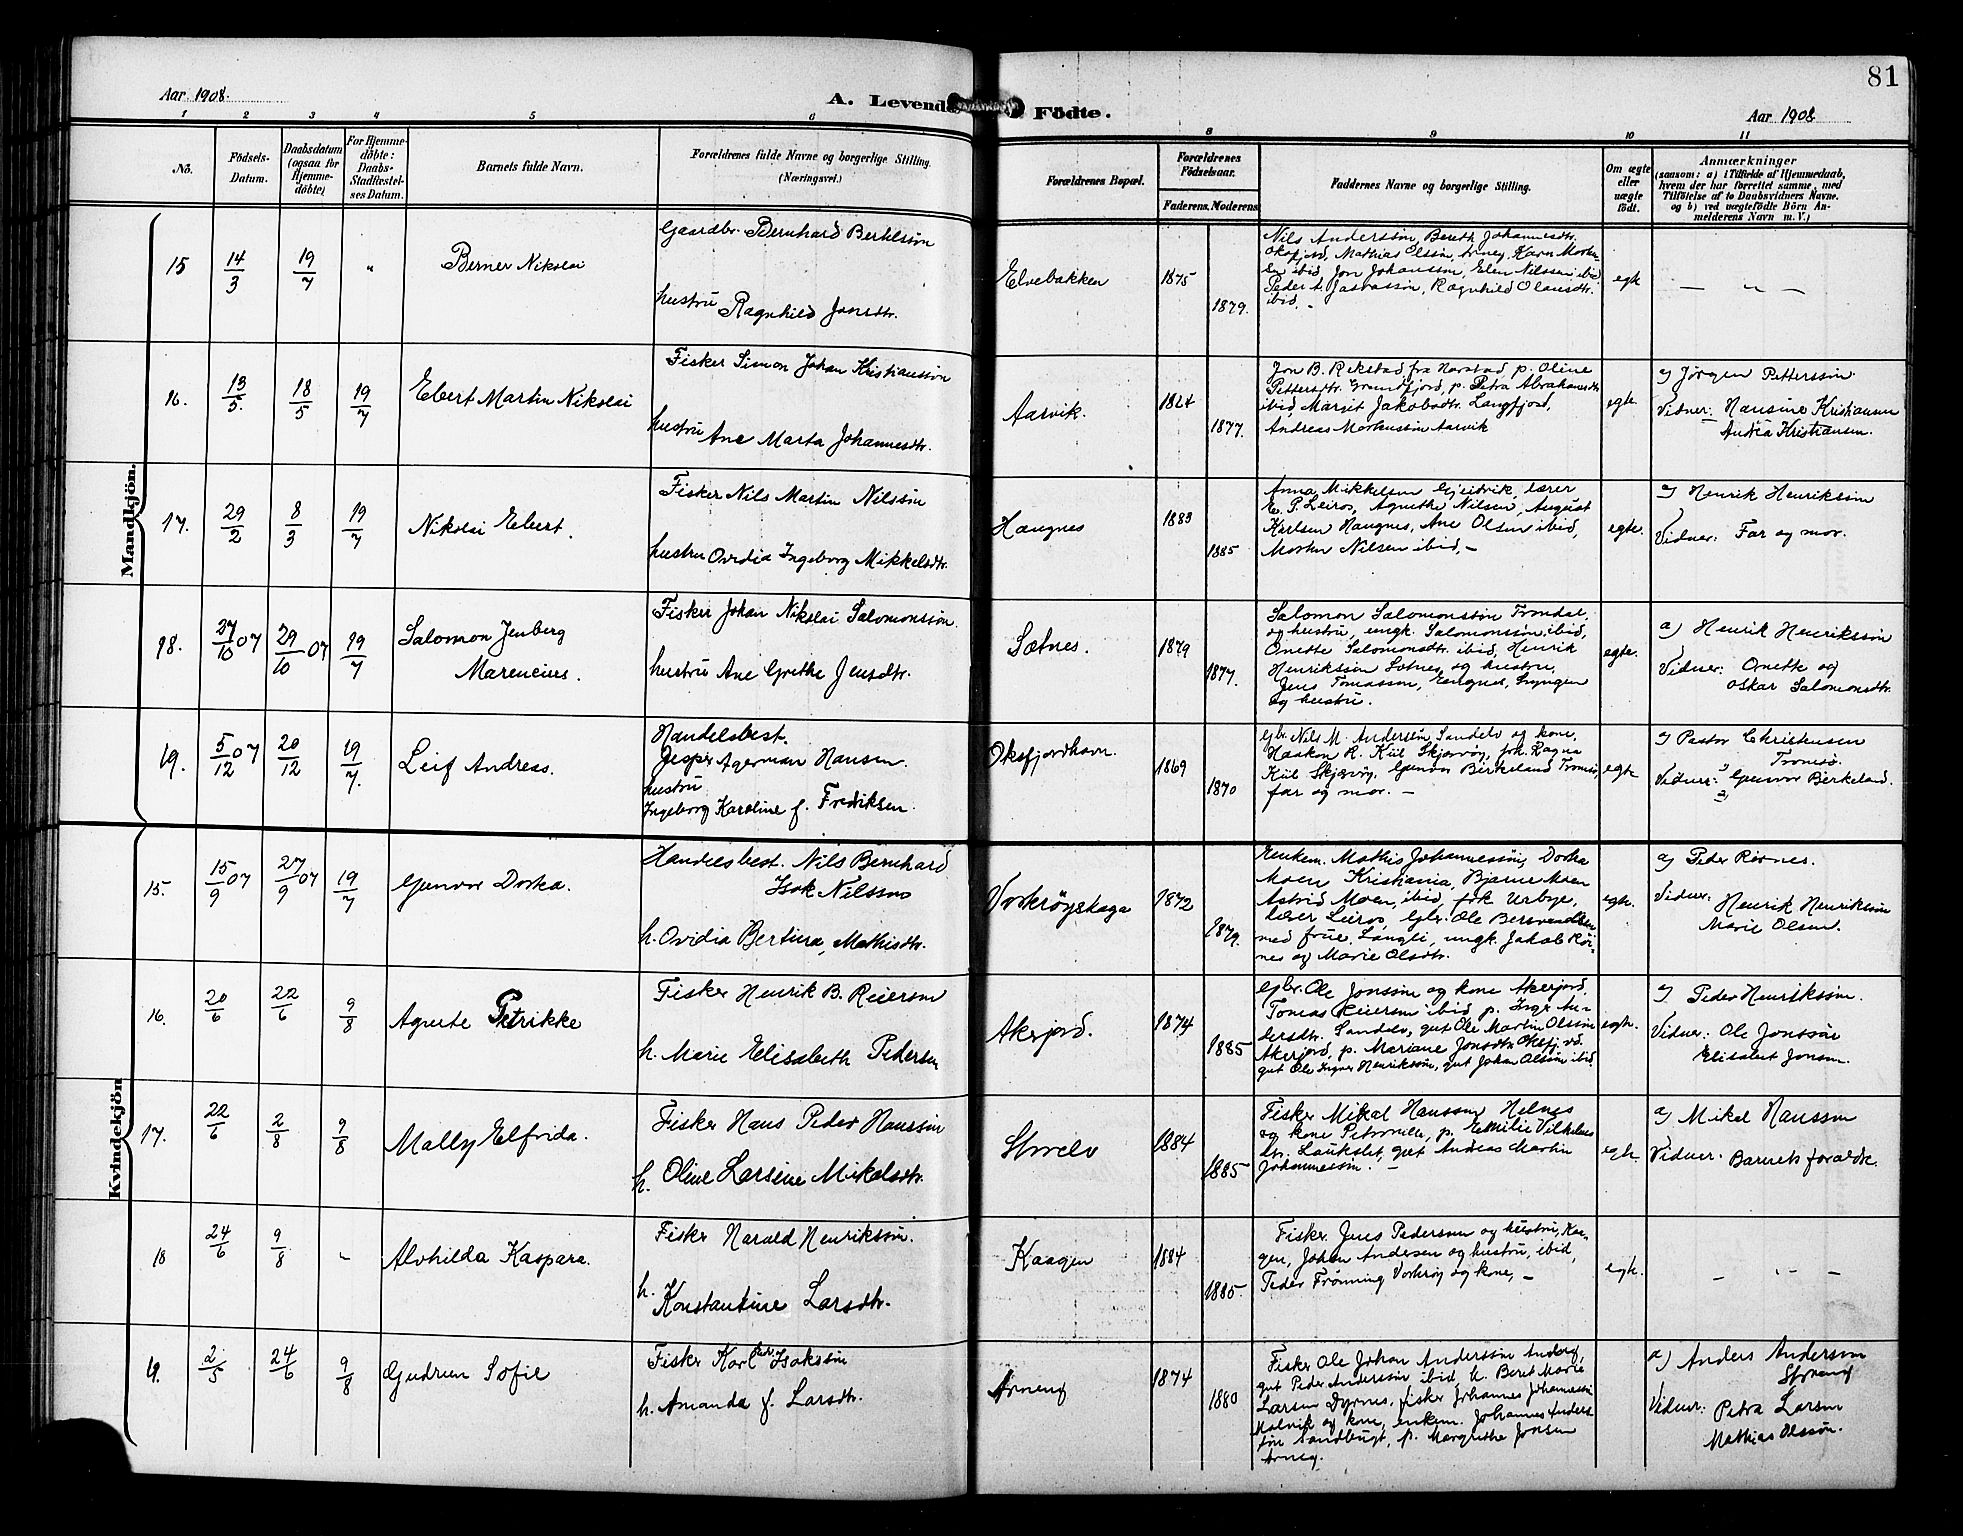 81
Aar 1908.
A. Levende Födte.
Aar 1908
1 2 3 4 5 6 8 9 10 11
No.
Födsels-Datum.
Daabsdatum (ogsaa for Hjemme-döbte)
For Hjemme-döbte: Daabs-Stadfæstel-ses Datum.
Barnets fulde Navn.
Forældrenes fulde Navne og borgerlige Stilling.
(Næringsvei.)
Forældrenes Bopæl.
Forældrenes Födselsaar.
Faderens. Moderens.
Faddernes Navne og borgerlige Stilling.
Om ægte eller uægte födt.
Anmærkninger
(saasom: a) i Tilfælde af Hjemmedaab,
hvem der har forrettet samme, med
Tilföielse af to Daabsvidners Navne.
og b) ved uægtefödte Börn An-
melderens Navn m. V.)
Mandkjön.
15 14/3 19/7 " Berner Nikolai
Gaardbr. Bernhard Bertelssön
hustru Ragnhild Jonsdtr.
Elvebakken 1875 1879.
Nils Anderssön, Bereth Johannesdtr.
Oksfjord, Mathias Olssön, Arnøy, Karen Morten-
sen ibid, Jon Johanssön, Elen Nilssen ibid
Peder A. Jasvassön, Ragnhild Olausdtr.
ibid. -
egte
— " —
16. 13/5. 18/5 19/7 Ebert Martin Nikolai
Fisker Simon Johan Kristianssön
hustru Ane Marta Johannesdtr.
Aarvik. 1824 1877.
Jon B. Rekstad fra Harstad, p. Oline
Pettersdtr. Grundfjord, p. Petra Abrahamsdtr
ibid, Margit Jakobsdtr. Langfjord,
Andreas Mortenssön Aarvik
egte.
a) Jørgen Petterssön.
Vidner: Hansine Kristiansen
Andrea Kristiansen.
17. 29/2 8/3 19/7 Nikolai Ebert.
Fisker Nils Martin Nilssön
hustru Ovidia Ingeborg Mikkelsdtr.
Haugnes 1883 1885
Anna Mikkelsen Gjeitvik, lærer
E. P. Leiros, Agnethe Nilsen, August
Karlsen Haugnes, Ane Olsen ibid,
Morten Nilsen ibid, -
egte.
a) Henrik Henrikssön
Vidner: Far og mor.
18. 27/10 07 29/10 07 19/7 Salomon Jenberg
Mareneius.
Fisker Johan Nikolai Salomonssön.
hustru Ane Grethe Jensdtr.
Sætnes. 1879 1877.
Salomon Salomonssön Trondal,
og hustru, ungk. Salomonssön, ibid,
Onette Salomonsdtr. ibid, Henrik
Henrikssön Sætnes, og hustru,
Jens Tomassön, Lyngen
og hustru.
egte.
a) Henrik Henrikssön
Vidner: Onette og
Oskar Salomonsdtr.
19. 5/12 07 20/12 19/7. Leif Andreas.
Handelsbest.
Jesper Agerman Hansen.
hustru
Ingeborg Karoline f. Fredriksen.
Oksfjordhavn. 1869 1870
Gbr. Nils M. Anderssön Sandelv og kone,
Haakon R. Kiil Skjærvøy, frk. Ragna
Kiil Skjærvøy, Gunvor Birkeland Tromsö,
far og mor. -
egte
a) Pastor Christensen
Tromsö.
Vidner: Gunvor Berkeland.
Kvindekjön
15. 15/9 07 27/9 07 19/7 Gunvor Dorka.
Handelsbest. Nils Bernhard
Isak Nilssen
h. Ovidia Bertina, Mathisdtr.
Vorterøyskaga 1872 1879.
Enkem. Mathis Johannessön, Dorka
Moen Kristiania, Bjarne Moen
Astrid Moen, ibid, frk Verbye,
lærer Leiros, Gbr. Ole Bersvendsen
med frue, Langli, ungk. Jakob Röi-
nes og Marie Olsdtr.
egte.
a) Peder Rörnes.
Vidner: Henrik Henrikssön
Marie Olsen.
16. 20/6 22/6 9/8 Agnete Petrikke
Fisker Henrik B. Reiersen
h. Marie Elisabeth Pedersen
Akerjord. 1874 1885
Gbr. Ole Jonssön og kone Akerjord,
Tomas Reiersen ibid p. Inga An-
dersdtr. Sandelv, gut Ole Martin Olssön
Akerjord, p. Mariane Jonsdtr. Oksfjord.
gut Ole Ingvar Henrikssön, gut Johan Olssön ibid.
egte.
a) Peder Henrikssön.
Vidner: Ole Jonssön
Elisabet Jonsen.
17. 22/6 2/8 9/8 Mally Elfrida.
Fisker Hans Peder Hanssön
h. Oline Larsine Mikalsdtr.
Storelv 1884 1885
Fisker Mikal Hanssen Helnes
og kone Petronelle, p. Emilie Vilhelms
dtr. Laukslet, gut Andreas Martin
Johannessön. -
egte.
a) Mikal Hanssen
Vidner: Barnets foraldre.
18 24/6 9/8 - Alvhilda Kaspara.
Fisker Harald Henrikssön.
h. Konstantine Larsdtr.
Kaagen 1884 1885.
Fisker Jens Pedersen og hustru, Kaa-
gen, Johan Andersen og hustru, ibid,
Peder Frönning Vorterøy og kone, -
egte.
— " —
19. 2/5 24/6 9/8 Gudrun Sofie
Fisker Karl Isakssön
h. Amanda f. Larsdtr.
Arnøy 1874 1880
Fisker Ole Johan Anderssön
gut Peder Anderssön ibid, h. Beret Marie
Larsen Dyrnes, fisker Johannes Johannessön
Malvik og kone, enkem. Johannes Anders
sön Sandbugt, p. Margrethe Jonsen
Arnøy.
a) Anders Anderssen
Vidner: Petra Larsen
Mathias Olssön.